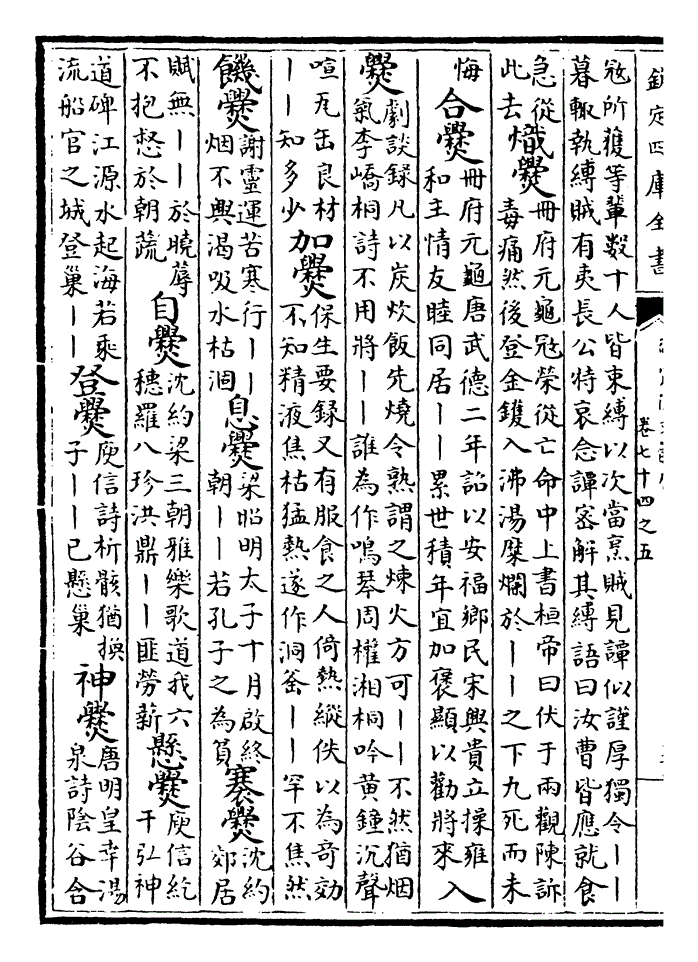 欽定四庫全書
卷七十四之五
冦所獲等輩數十人皆束縛以次當烹賊見譚似謹厚獨令——
暮輙執縛賊有夷長公特哀念譚密解其縛語曰汝曹皆應就食
急從
此去
熾爨
冊府元龜冦榮從亡命中上書桓帝曰伏于兩觀陳訴
毒痛然後登金鑊入沸湯糜爛於——之下九死而未
悔
合爨
冊府元龜唐武德二年詔以安福鄉民宋興貴立操雍
和主情友睦同居——累世積年宜加褒顯以勸將來
入
爨
劇談録凡以炭炊飯先燒令熟謂之煉火方可——不然猶烟
氣李嶠桐詩不用將——誰為作鳴琴周權湘桐吟黄鐘沉聲
喧瓦缶良材
——知多少
加爨
保生要録又有服食之人倚熱縱佚以為奇効
不知精液焦枯猛熱遂作洞釜——罕不焦然
饑爨
謝靈運苦寒行——
烟不興渴吸水枯涸
息爨
梁昭明太子十月啟終
朝——若孔子之為貧
褰爨
沈約
郊居
賦無——於曉蓐
不抱惄於朝蔬
自爨
沈約梁三朝雅樂歌道我六
穗羅八珍洪鼎——匪勞薪
懸爨
庾信紇
干弘神
道碑江源水起海若乘
流船官之城登巢——
登爨
庾信詩析骸猶換
子——已懸巢
神爨
唐明皇幸湯
泉詩陰谷含